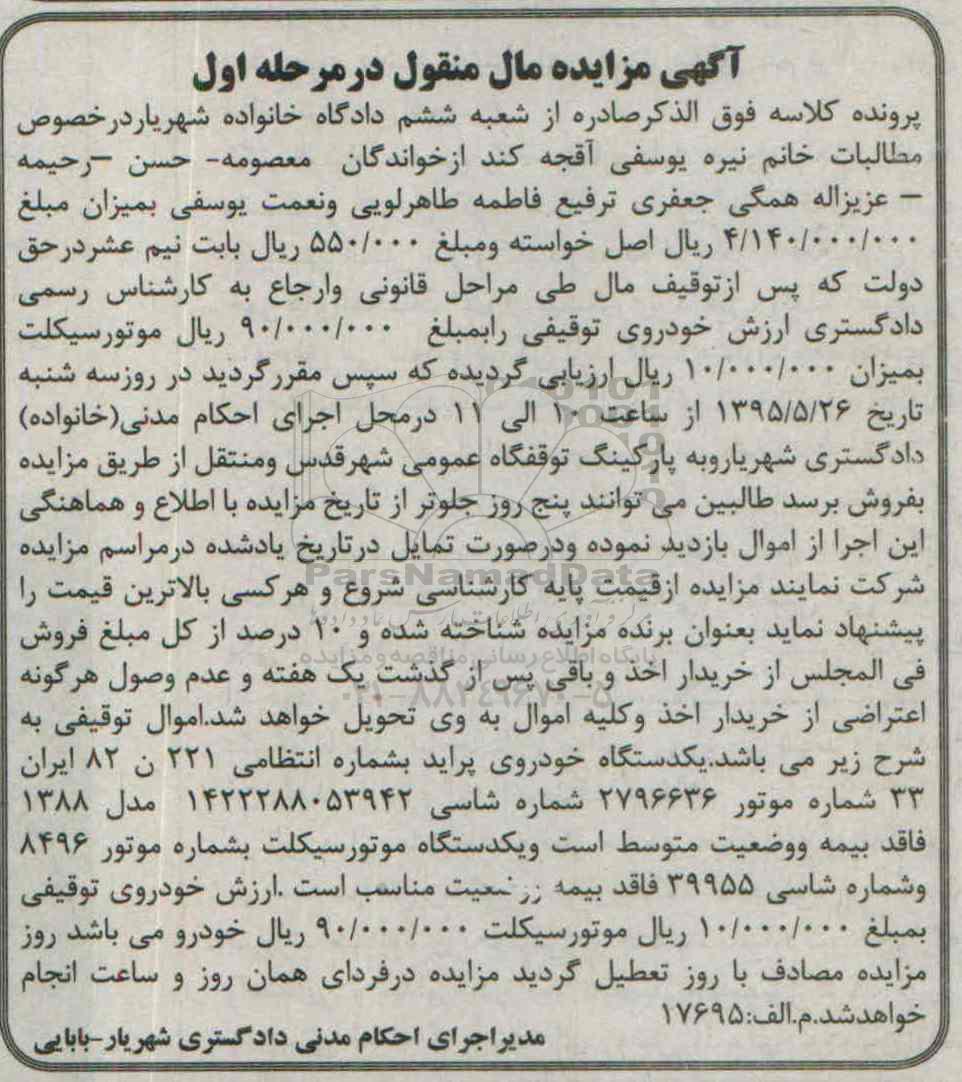 آگهی مزایده مال منقول درمرحله اول
پرونده کلاسه فوق الذکرصادره از شعبه ششم دادگاه خانواده شهریاردرخصوص
مطالبات خانم نیره یوسفی آقجه کند ازخواندگان معصومه- حسن –رحیمه
– عزیزاله همگی جعفری ترفیع فاطمه طاهرلویی ونعمت یوسفی بمیزان مبلغ
۴/۱۴۰/۰۰۰/۰۰۰ ریال اصل خواسته ومبلغ ۵۵۰/۰۰۰ ریال بابت نیم عشردرحق
دولت که پس ازتوقیف مال طی مراحل قانونی وارجاع به کارشناس رسمی
دادگستری ارزش خودروی توقیفی رابمبلغ ۹۰/۰۰۰/۰۰۰ ریال موتورسیکلت
بمیزان ۱۰/۰۰۰/۰۰۰ ریال ارزیابی گردیده که سپس مقررگردید در روزسه شنبه
تاریخ ۱۳۹۵/۵/۲۶ از ساعت ۱۰ الی ۱۱ درمحل اجرای احکام مدنی(خانواده)
دادگستری شهریاروبه پارکینگ توقفگاه عمومی شهرقدس ومنتقل از طریق مزایده
بفروش برسد طالبین می توانند پنج روز جلوتر از تاریخ مزایده با اطلاع و هماهنگی
این اجرا از اموال بازدید نموده ودرصورت تمایل درتاریخ یادشده درمراسم مزایده
ParsNamadData
شرکت نمایند مزایده ازقیمت پایه کارشناسی شروع و هرکسی بالاترین قیمت را
پیشنهاد نماید بعنوان برنده مزایده شناخته شده و ۱۰ درصد از کل مبلغ فروش
پایگاه اطلاع رسانی مناقصه و مزایده
فی المجلس از خریدار اخذ و باقی پس از گذشت یک هفته و عدم وصول هرگونه
۰۲۱-۸۸۲۴۹۶۷۰-۵
اعتراضی از خریدار اخذ وکلیه اموال به وی تحویل خواهد شد.اموال توقیفی به
شرح زیر می باشد.یکدستگاه خودروی پراید بشماره انتظامی ۲۲۱ ن ۸۲ ایران
۳۳ شماره موتور ۲۷۹۶۶۳۶ شماره شاسی ۱۴۲۲۲۸۸۰۵۳۹۴۲ مدل ۱۳۸۸
فاقد بیمه ووضعیت متوسط است ویکدستگاه موتورسیکلت بشماره موتور ۸۴۹۶
وشماره شاسی ۳۹۹۵۵ فاقد بیمه مناسب است .ارزش خودروی توقیفی
بمبلغ ۱۰/۰۰۰/۰۰۰ ریال موتورسیکلت ۹۰/۰۰۰/۰۰۰ ریال خودرو می باشد روز
مزایده مصادف با روز تعطیل گردید مزایده درفردای همان روز و ساعت انجام
خواهدشد.م.الف:۱۷۶۹۵
مدیراجرای احکام مدنی دادگستری شهریار-بابایی